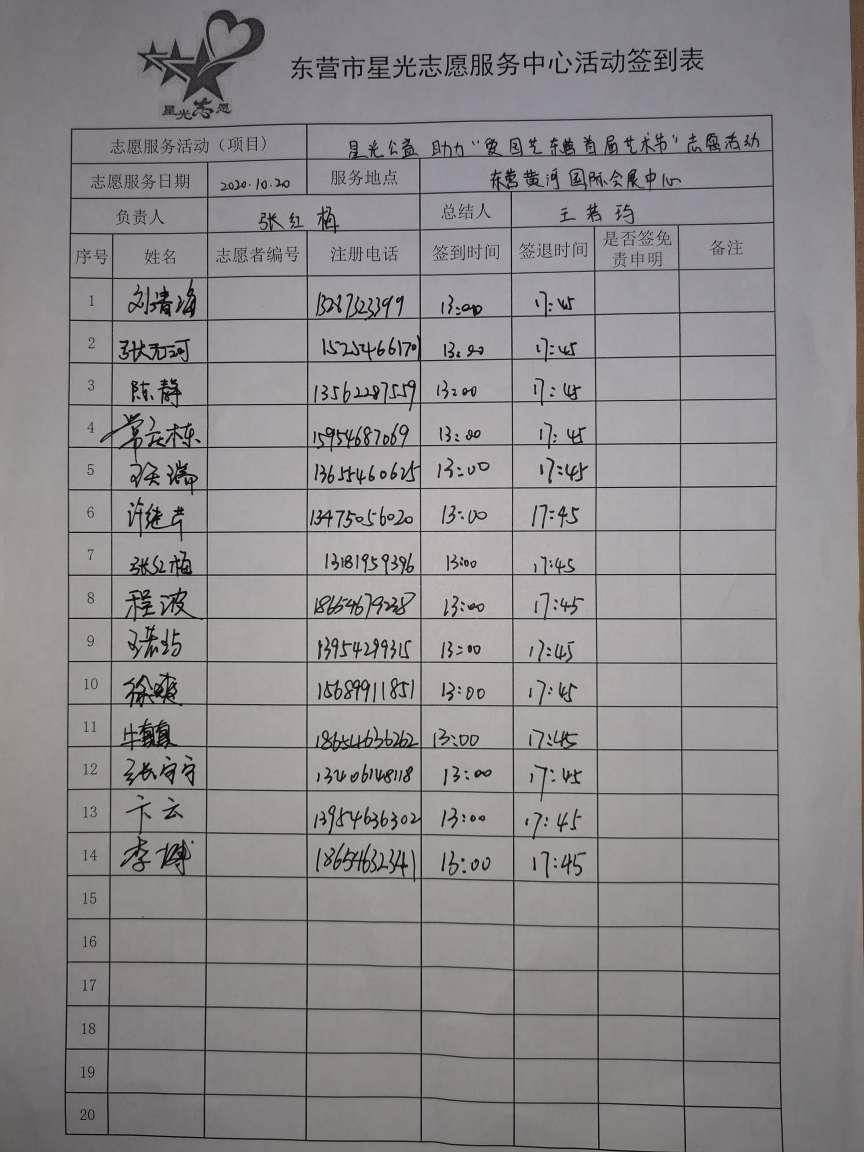 星光志愿
东营市星光志愿服务中心活动签到表
志愿服务活动（项目） 星光公益 助力“爱国艺东营首届艺术节”志愿活动
志愿服务日期 2020.10.20 服务地点 东营黄河国际会展中心
负责人 张红梅 总结人 王若玙
序号 姓名 志愿者编号 注册电话 签到时间 签退时间 是否签免责申明 备注
1 刘清海 13287323399 13:00 17:45
2 张元河 15254661701 13:00 17:45
3 陈静 13562287559 13:00 17:45
4 常庆栋 15954687069 13:00 17:45
5 瑞 13655460625 13:00 17:45
6 许继芹 13475056020 13:00 17:45
7 张红梅 13181959396 13:00 17:45
8 程波 18654679238 13:00 17:45
9 王若玙 13954299315 13:00 17:45
10 徐爽 15689911851 13:00 17:45
11 牛真真 18654636262 13:00 17:45
12 张宁宁 13406148118 13:00 17:45
13 卞云 13954636302 13:00 17:45
14 李博 18654632341 13:00 17:45
15
16
17
18
19
20